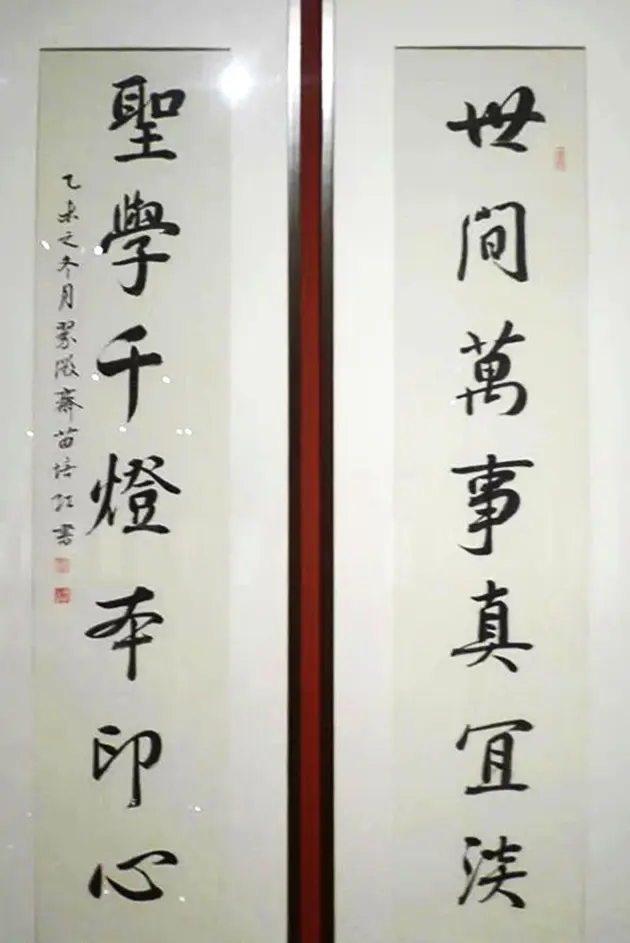 世間萬事真宜淡
聖學千燈本印心
乙未之冬月翠微齋苗培紅書